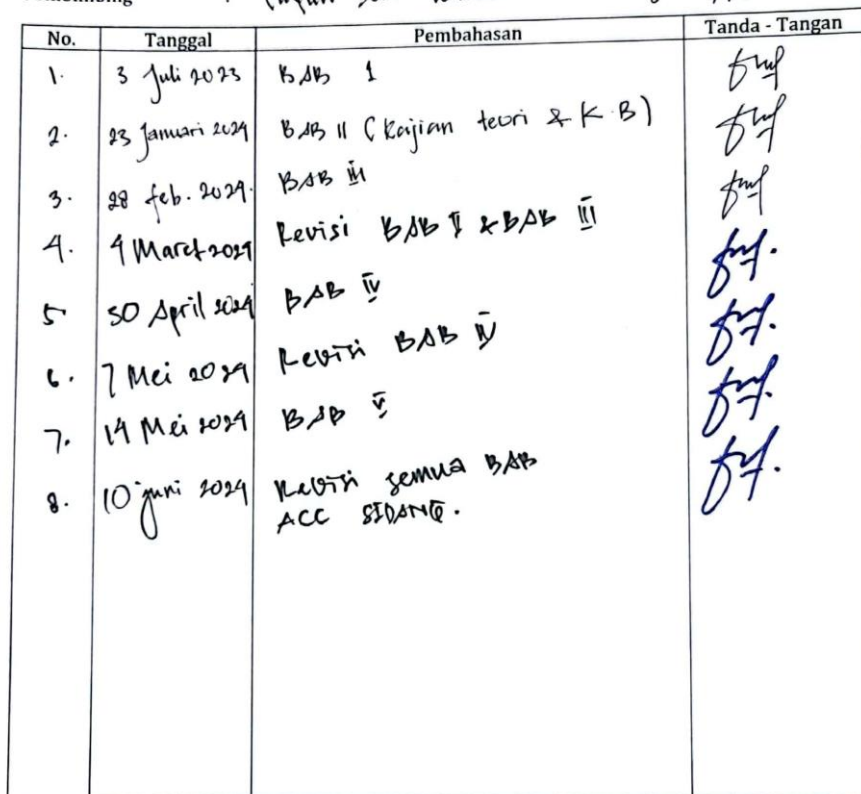 No. Tanggal Pembahasan Tanda - Tangan
1. 3 Juli 2023 BAB 1
2. 23 Januari 2024 BAB II (Kajian teori & K.B)
3. 28 feb. 2024. BAB III
4. 4 Maret 2024 Revisi BAB II & BAB III
5 30 April 2024 BAB IV
6. 7 Mei 2024 Revisi BAB IV
7. 14 Mei 2024 BAB V
8. 10 juni 2024 Revisi semua BAB
ACC SIDANG.